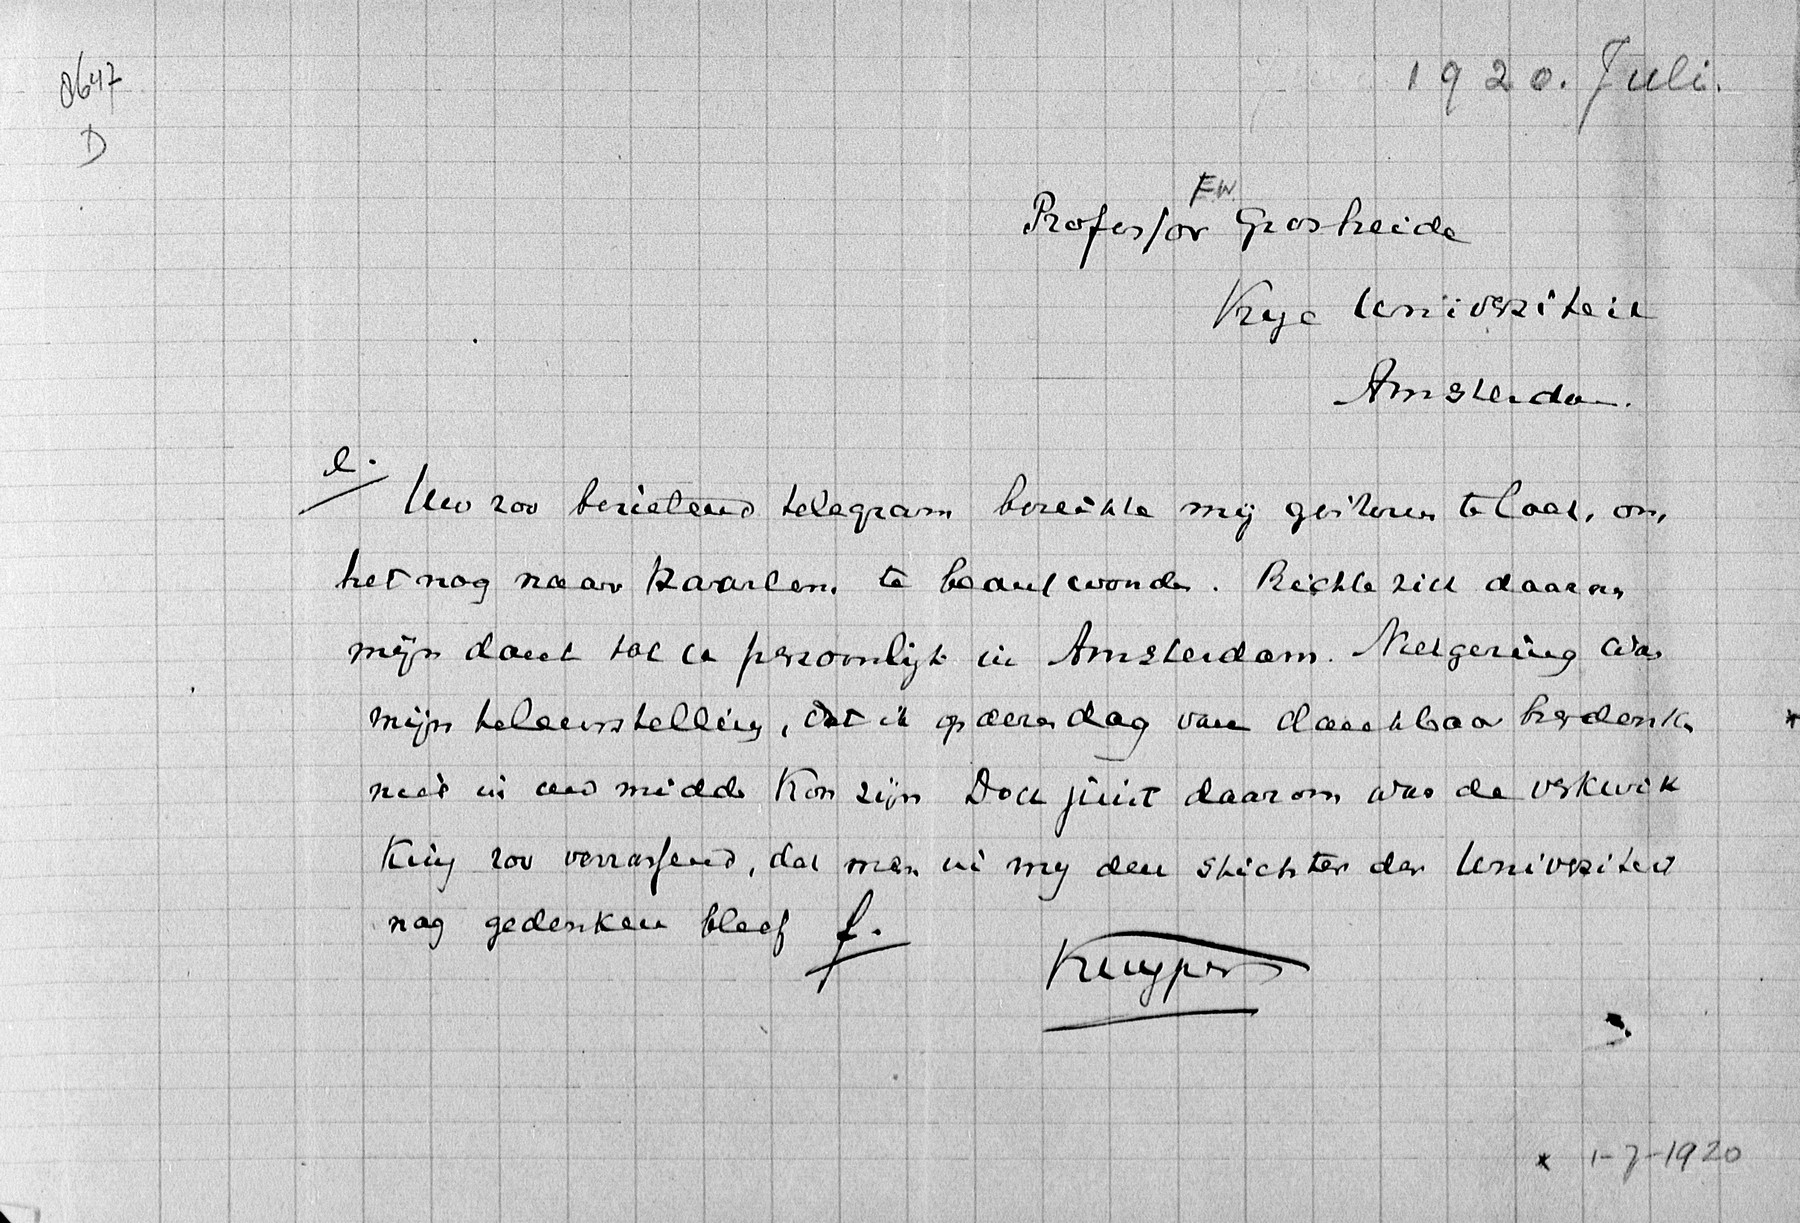 8647
D
1920. Juli.
F.W.
Professor Grosheide
Vrye Universiteit
Amsterdam.
Uw zoo bezielend telegram bereikte mij gisteren te laat, om
het nog naar Haarlem te beantwoorden. Richte zich daarom
mijn dank tot u persoonlijk in Amsterdam. Niet gering was
mijn teleurstelling, dat ik op dezen dag van dankbaar herdenken *
niet in uw midden kon zijn Doch juist daarom was de verkwik
king zoo verrassend, dat men in my den stichter der Universiteit
nog gedenken bleef f.
Kuyper
* 1-7-1920